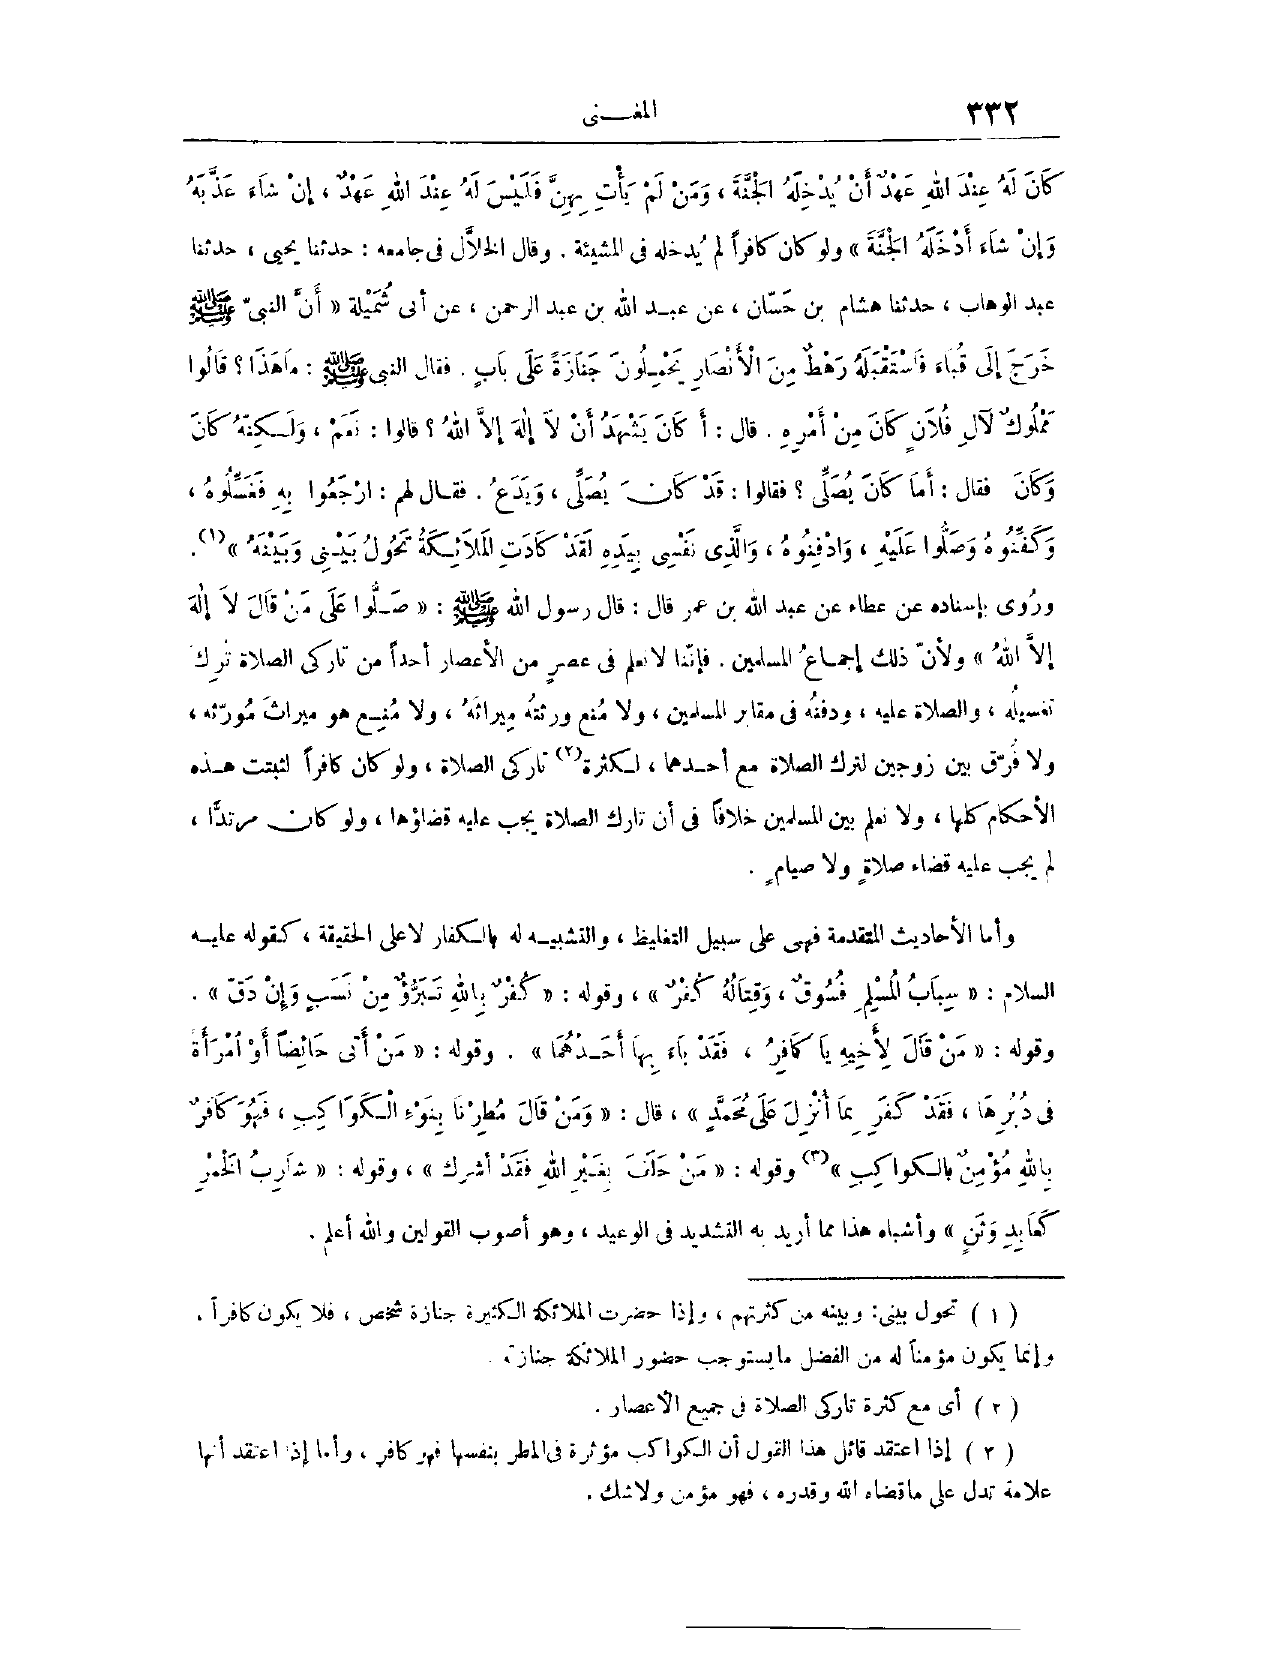 ٣٣٢
المغـــنى
كَانَ لَهُ عِنْدَ اللهِ عَهْدٌ أَنْ يُدْخِلَهُ الْجَنَّةَ ، وَمَنْ لَمْ يَأْتِ بِهِنَّ فَلَيْسَ لَهُ عِنْدَ اللهِ عَهْدٌ ، إِنْ شَاءَ عَذَّبَهُ
وَإِنْ شَاءَ أَدْخَلَهُ الْجَنَّةَ » ولو كان كافراً لم يُدخله فى المشيئة . وقال الخلاَّل فى جامعه : حدثنا يحيى ، حدثنا
عبد الوهاب ، حدثنا هشام بن حَسّان ، عن عبـد الله بن عبد الرحمن ، عن أبى شُمَيْلة « أَنَّ النبىّ ﷺ
خَرَجَ إِلَى قُبَاءَ فَاسْتَقْبَلَهُ رَهْطٌ مِنَ الْأَنْصَارِ يَحْمِلُونَ جَنَازَةً عَلَى بَابٍ . فقال النبى ﷺ : مَاهَذَا ؟ قَالُوا
مَمْلُوكٌ لآلِ فُلاَنٍ كَانَ مِنْ أَمْرِهِ . قال : أَ كَانَ يَشْهَدُ أَنْ لاَ إِلٰهَ إِلاَّ اللهُ ؟ قالوا : نَعَمْ ، وَلَـكِنَّهُ كَانَ
وَكَانَ فقال : أَمَا كَانَ يُصَلِّى ؟ فقالوا : قَدْ كَانَ يُصَلِّى ، وَيَدَعُ . فقـال لهم : ارْجَعُوا بِهِ فَغَسِّلُوهُ ،
وَكَفِّنُوهُ وَصَلُّوا عَلَيْهِ ، وَادْفِنُوهُ ، وَالَّذِى نَفْسِى بِيَدِهِ لَقَدْ كَادَتِ الْمَلاَئِـكَةُ تَحُولُ بَيْـنِى وَبَيْنَهُ »(١).
ورُوى بإسناده عن عطاء عن عبد الله بن عمر قال : قال رسول الله ﷺ : « صَـلُّوا عَلَى مَنْ قَالَ لاَ إِلٰهَ
إِلاَّ اللهُ » ولأنّ ذلك إجمـاعُ المسلمين . فإنّنا لا نعلم فى عصرٍ من الأعصار أحداً من تاركى الصلاة تُرِك
تغسيلُه ، والصلاة عليه ، ودفنُه فى مقابر المسلمين ، ولا مُنع ورثتُه مِيراثَهُ ، ولا مُنِـع هو ميراثَ مُورّثه ،
ولا فُرِّق بين زوجين لترك الصلاة مع أحـدهما ، لـكثرة(٢) تاركى الصلاة ، ولو كان كافراً لثبتت هـذه
الأحكام كلها ، ولا نعلم بين المسلمين خلافاً فى أن تارك الصلاة يجب عليه قضاؤها ، ولو كان مرتدًّا ،
لم يجب عليه قضاء صلاةٍ ولا صيامٍ .
وأما الأحاديث المتقدمة فهى على سبيل التغليظ ، والتشبيـه له بالـكفار لا على الحقيقة ، كـقوله عليـه
السلام : « سِبَابُ الْمُسْلِمِ فُسُوقٌ ، وَقِتَالُهُ كُفْرٌ » ، وقوله : « كُفْرٌ بِاللهِ تَـبَرُّؤٌ مِنْ نَسَبٍ وَإِنْ دَقّ » .
وقوله : « مَنْ قَالَ لِأَخِيهِ يَا كَافِرُ ، فَقَدْ بَاءَ بِهَا أَحَـدُهُمَا » . وقوله : « مَنْ أَتَى حَائِضاً أَوْ امْرَأَةً
فى دُبُرِهَا ، فَقَدْ كَفَرَ بِمَا أُنْزِلَ عَلَى مُحَمَّدٍ » ، قال : « وَمَنْ قَالَ مُطِرْنَا بِنَوْءِ الْـكَوَاكِبِ ، فَهُوَ كَافِرٌ
بِاللهِ مُؤْمِنٌ بالـكواكِبِ »(٣) وقوله : « مَنْ حَلَفَ بِغَيْرِ اللهِ فَقَدْ أشرك » ، وقوله : « شَارِبُ الْخَمْرِ
كَعَابِدِ وَثَنٍ » وأشباه هذا مما أريد به التشديد فى الوعيد ، وهو أصوب القولين والله أعلم .
( ١ ) تحول بينى: وبينه من كثرتهم ، وإذا حضرت الملائكة الـكثيرة جنازة شخص ، فلا يكون كافراً .
وإنما يكون مؤمناً له من الفضل ما يستوجب حضور الملائكة جنازته .
( ٢ ) أى مع كثرة تاركى الصلاة فى جميع الأعصار .
( ٣ ) إذا اعتقد قائل هذا القول أن الـكواكب مؤثرة فى المطر بنفسها فهو كافر ، وأما إذا اعتقد أنها
علامة تدل على ماقضاه الله وقدره ، فهو مؤمن ولاشك .